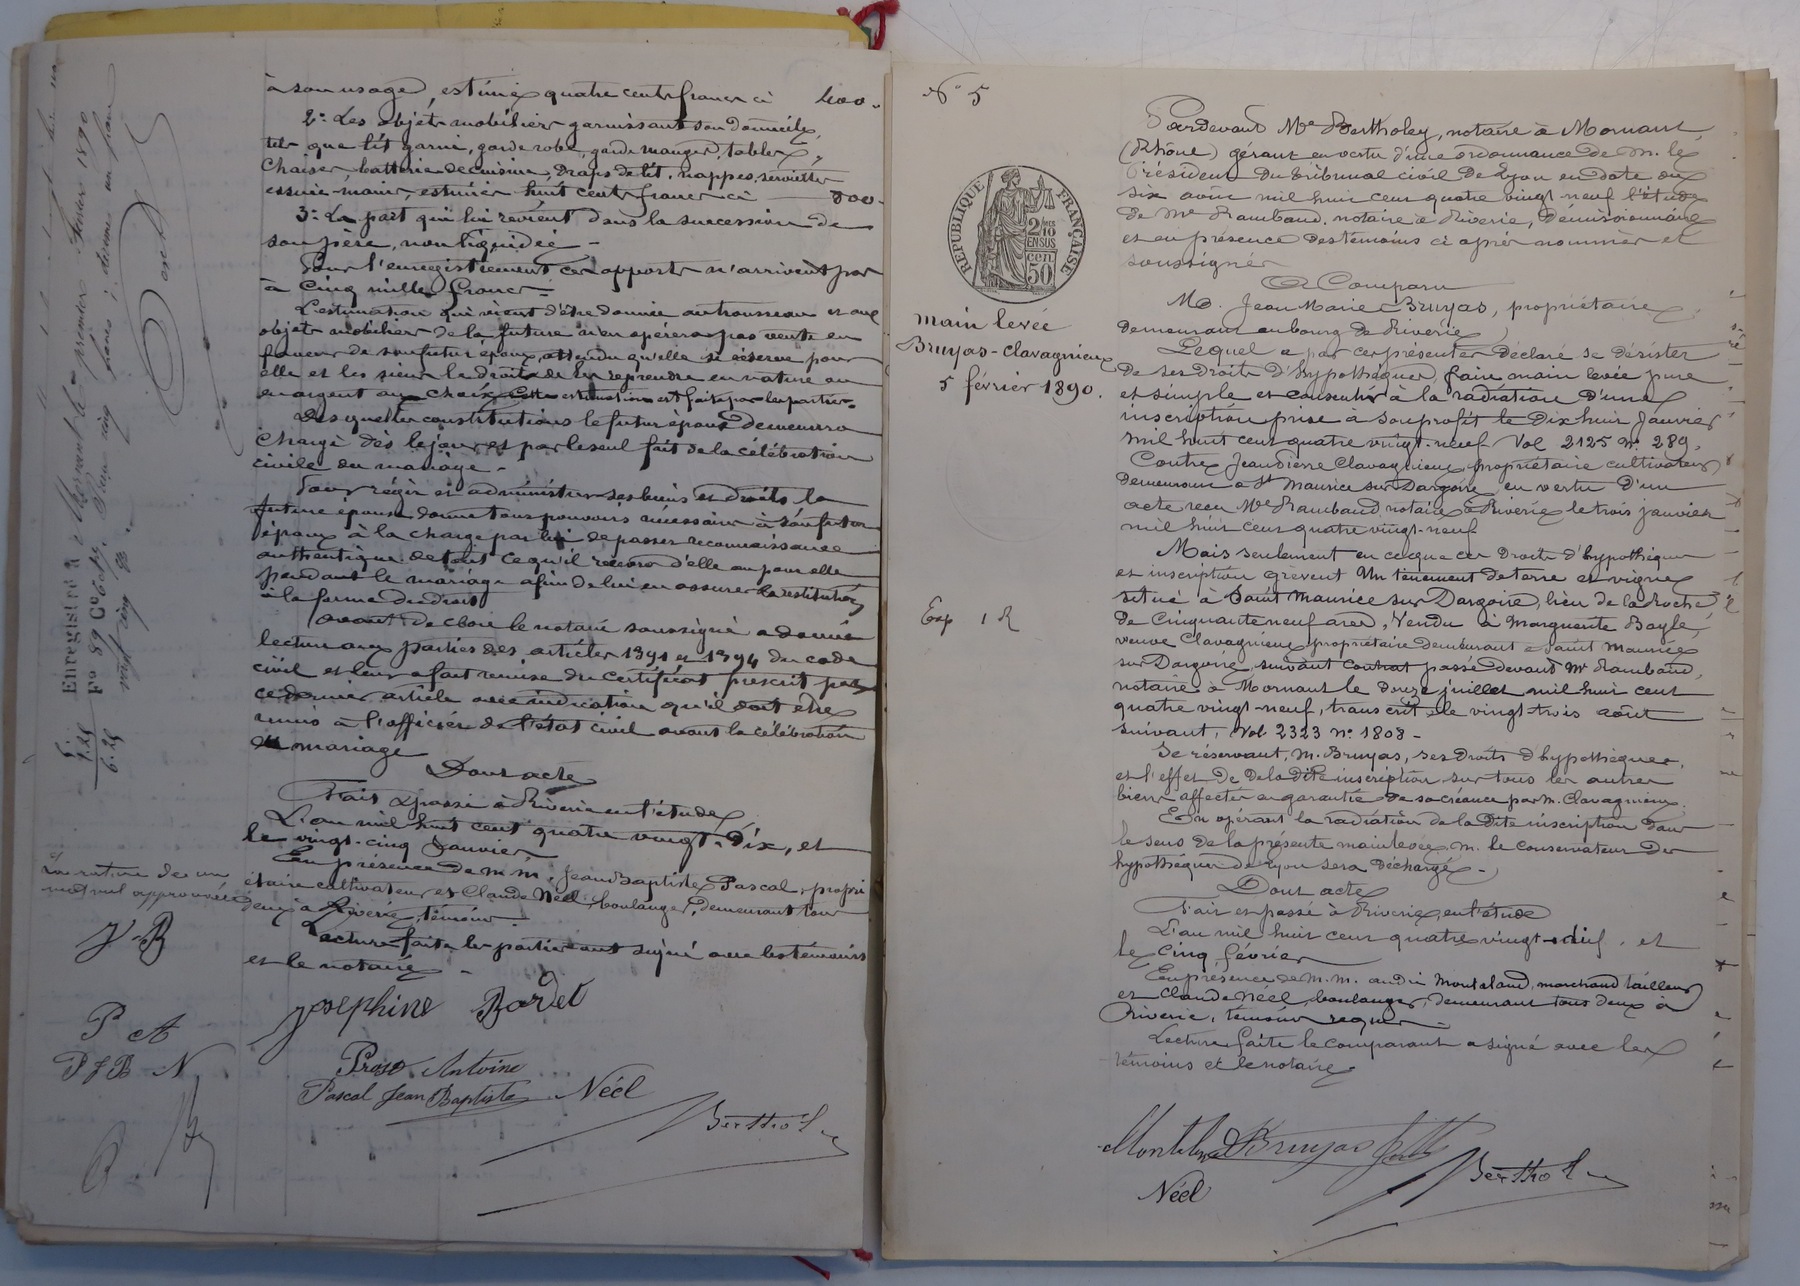 à son usage, estimés quatre cents francs ci 400.
2° Les objets mobiliers garnissant son domicile,
tels que lit garni, garde robe, garde manger, tables,
chaises, batterie de cuisine, draps de lit, nappes, serviettes
essuie-mains, estimés huit cents francs ci 800.
3° La part qui lui revient dans la succession de
son père, non liquidée
Pour l'enregistrement ces apports n'arrivent pas
à cinq mille francs
L'estimation qui vient d'être donnée au trousseau et aux
objets mobiliers de la future n'en opérera pas vente en
faveur de son futur époux, attendu qu'elle se réserve pour
elle et les siens le droit de les reprendre en nature ou
en argent aux choix, cette estimation est faite par les parties.
Desquelles constitutions le futur époux demeurera
chargé dès le jour et par le seul fait de la célébration
civile du mariage.
Pour régir et administrer ses biens et droits la
future épouse donne tous pouvoirs nécessaires à son futur
époux à la charge par lui de passer reconnaissance
authentique de tout ce qu'il recevra d'elle ou pour elle
pendant le mariage afin de lui en assurer la restitution
à la forme du droit
Avant de clore le notaire soussigné a donné
lecture aux parties des articles 1391 et 1394 du code
civil et leur a fait remise du certificat prescrit par
ce dernier article avec indication qu'il doit être
remis à l'officier de l'état civil avant la célébration
du mariage
Dont acte
Fait & passé à Riverie en l'étude
L'an mil huit cent quatre vingt-dix, et
le vingt-cinq janvier
En présence de m.m. Jean Baptiste Pascal, propri
étaire cultivateur, et Claude Néel, boulanger, demeurant tous
deux à Riverie, témoins
Lecture faite les parties ont signé avec les témoins
et le notaire
Josephine Bordet
Antoine
Pascal Jean Baptiste Néel
Berthol
Enregistré à Mornant le premier février 1890
F° 89 C°
1.25
6.25
mot nul approuvée
J-B
P A
P J B N
N° 5
RÉPUBLIQUE FRANÇAISE
2/10
EN SUS
50 cen
main levée
Bruyas-Clavagnieux
5 février 1890.
Exp 1 R
Pardevant Me Bertholey, notaire à Mornant
(Rhône) gérant en vertu d'une ordonnance de M. le
Président du tribunal civil de Lyon en date du
six août mil huit cent quatre vingt neuf l'étude
de Me Rambaud, notaire à Riverie, démissionnaire
et en présence des témoins ci après nommés et
soussignés
A Comparu
M. Jean Marie Bruyas, propriétaire
demeurant au bourg de Riverie
Lequel a par ces présentes déclaré se désister
de ses droits d'hypothèques, faire main levée pure
et simple et consentir à la radiation d'une
inscription prise à son profit le dix huit janvier
mil huit cent quatre vingt-neuf Vol 2125 n° 289.
Contre Jean Pierre Clavagnieux propriétaire cultivateur
demeurant à St Maurice sur Dargoire, en vertu d'un
acte reçu Me Rambaud, notaire à Riverie le trois janvier
mil huit cent quatre vingt-neuf
Mais seulement en ce que ces droits d'hypothèque
et inscription grèvent un tènement de terre et vigne
situé à Saint Maurice sur Dargoire, lieu de la Roche,
de cinquante neuf ares, vendu à Marguerite Bayle,
veuve Clavagnieux propriétaire demeurant à Saint Maurice
sur Dargoire, suivant contrat passé devant Me Rambaud,
notaire à Mornant le douze juillet mil huit cent
quatre vingt-neuf, transcrit le vingt-trois août
suivant, Vol 2323 n° 1808 -
Se réservant, M. Bruyas, ses droits d'hypothèques,
et l'effet de de la dite inscription sur tous les autres
biens affectés en garantie de sa créance par M. Clavagnieux.
En opérant la radiation de la dite inscription dans
le sens de la présente mainlevée, m. le conservateur des
hypothèques de Lyon sera déchargé -
Dont acte
Fait et passé à Riverie, en l'étude
L'an mil huit cent quatre vingt-dix, et
le cinq février
En présence de m.m. Montaland, marchand tailleur
et Claude Néel, boulanger, demeurant tous deux à
Riverie, témoins requis
Lecture faite le comparant a signé avec les
témoins et le notaire
Bruyas
Berthol
Néel